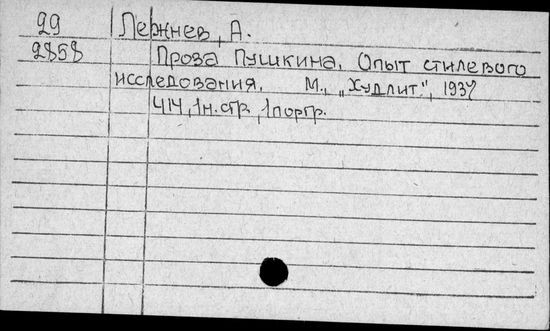 29 Лежнев, А.
2858 Проза Пушкина. Опыт стилевого
исследования. М., „Худлит.", 1937
414, 1н.стр., 1портр.